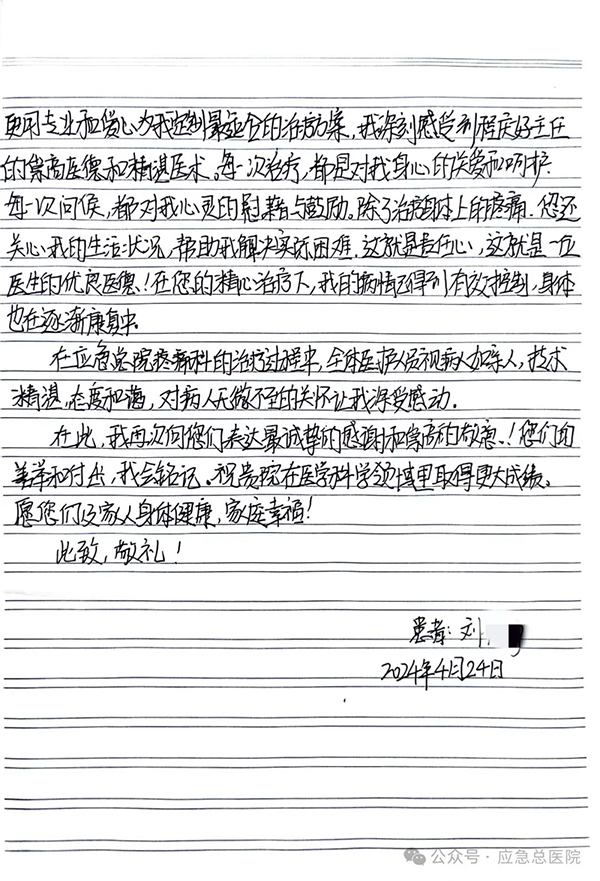 更用专业和爱心为我选到最适合的治疗方案,我深刻感受到程庆好主任
的崇高医德和精湛医术。每一次治疗,都是对我身心的关爱和呵护.
每一次问候,都对我心灵的慰藉与鼓励。除了治疗身体上的疼痛.您还
关心我的生活状况,帮助我解决实际困难.这就是责任心,这就是一位
医生的优良医德!在您的精心治疗下,我的病情得到有效控制,身体
也在逐渐康复中。
在应急总院疼痛科的治疗过程中,全体医护人员视病人如亲人,技术
精湛,态度和蔼,对病人无微不至的关怀让我深受感动.
在此,我再次向您们表达最诚挚的感谢和崇高的敬意!您们的
善举和付出,我会铭记。祝贵院在医学科学领域里取得更大成绩。
愿您们及家人身体健康,家庭幸福!
此致,敬礼!
患者:刘
2024年4月24日
公众号·应急总医院